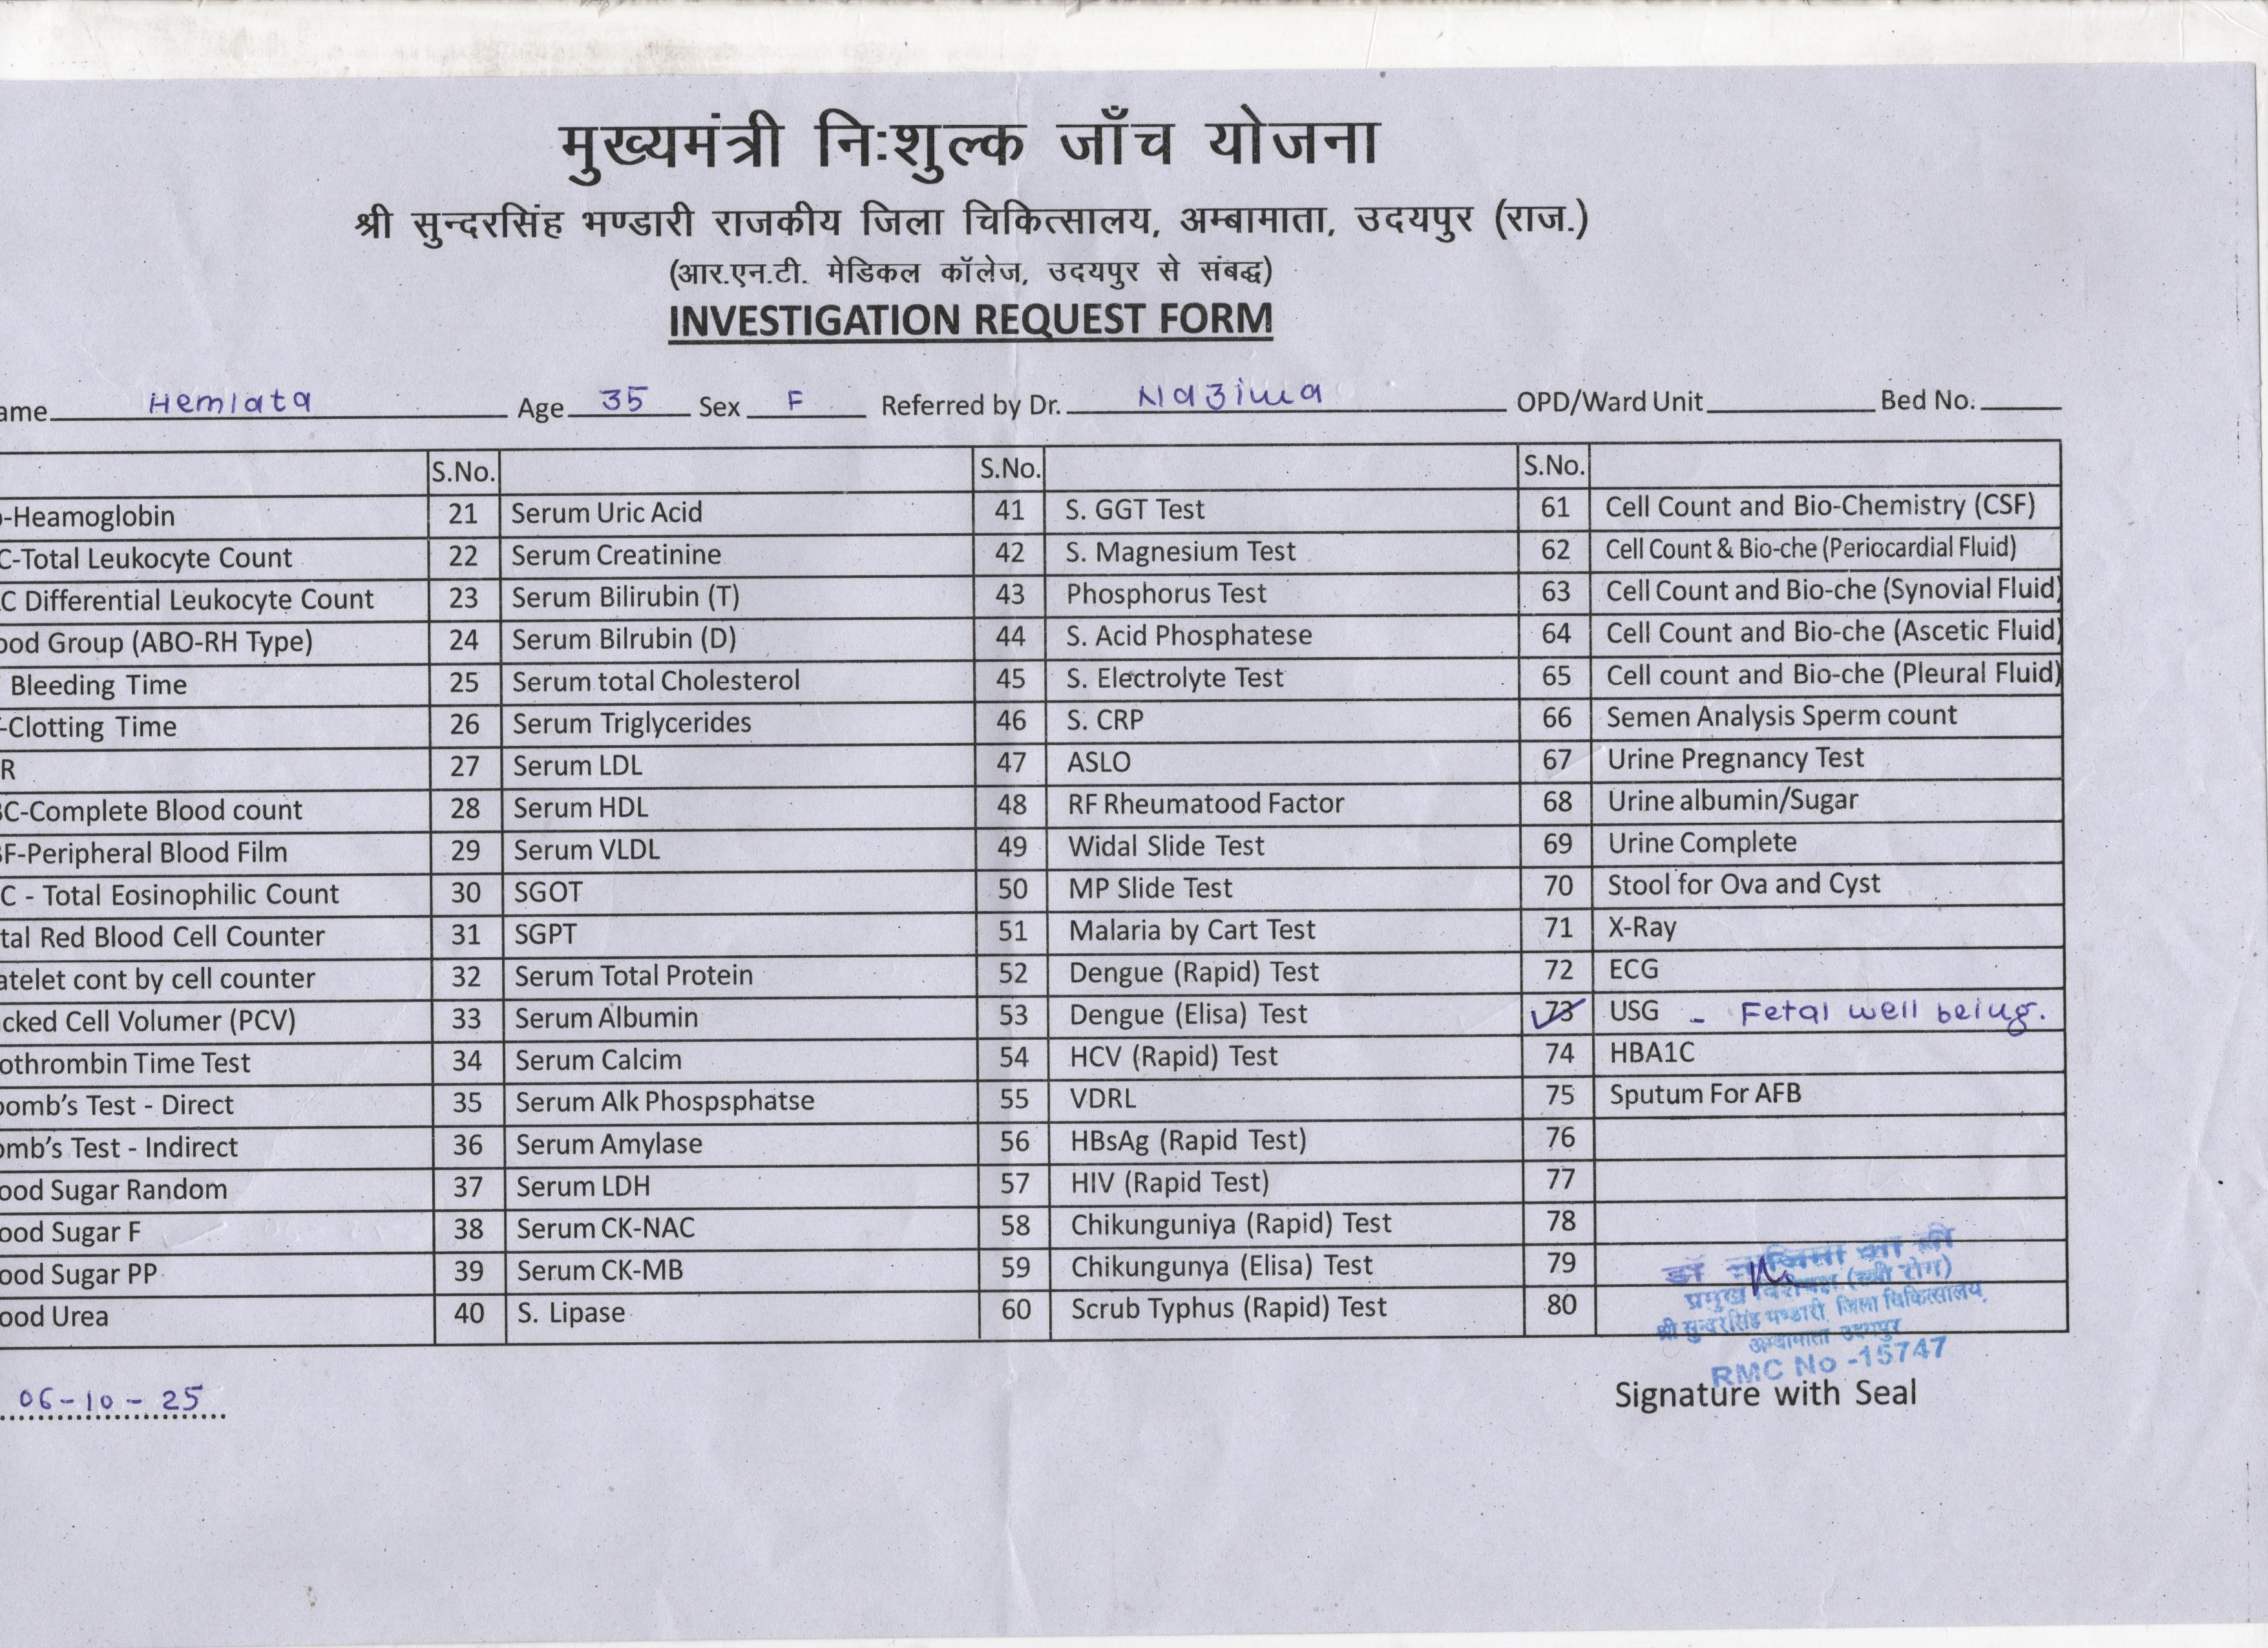 मुख्यमंत्री निःशुल्क जाँच योजना
श्री सुन्दरसिंह भण्डारी राजकीय जिला चिकित्सालय, अम्बामाता, उदयपुर (राज.)
(आर.एन.टी. मेडिकल कॉलेज, उदयपुर से संबद्ध)
INVESTIGATION REQUEST FORM
ame Hemlata Age 35 Sex F Referred by Dr. Nazima OPD/Ward Unit Bed No.
S.No. S.No. S.No.
-Heamoglobin 21 Serum Uric Acid 41 S. GGT Test 61 Cell Count and Bio-Chemistry (CSF)
C-Total Leukocyte Count 22 Serum Creatinine 42 S. Magnesium Test 62 Cell Count & Bio-che (Periocardial Fluid)
C Differential Leukocyte Count 23 Serum Bilirubin (T) 43 Phosphorus Test 63 Cell Count and Bio-che (Synovial Fluid)
ood Group (ABO-RH Type) 24 Serum Bilrubin (D) 44 S. Acid Phosphatese 64 Cell Count and Bio-che (Ascetic Fluid)
Bleeding Time 25 Serum total Cholesterol 45 S. Electrolyte Test 65 Cell count and Bio-che (Pleural Fluid)
-Clotting Time 26 Serum Triglycerides 46 S. CRP 66 Semen Analysis Sperm count
R 27 Serum LDL 47 ASLO 67 Urine Pregnancy Test
C-Complete Blood count 28 Serum HDL 48 RF Rheumatood Factor 68 Urine albumin/Sugar
F-Peripheral Blood Film 29 Serum VLDL 49 Widal Slide Test 69 Urine Complete
C - Total Eosinophilic Count 30 SGOT 50 MP Slide Test 70 Stool for Ova and Cyst
tal Red Blood Cell Counter 31 SGPT 51 Malaria by Cart Test 71 X-Ray
atelet cont by cell counter 32 Serum Total Protein 52 Dengue (Rapid) Test 72 ECG
cked Cell Volumer (PCV) 33 Serum Albumin 53 Dengue (Elisa) Test 73 USG - Fetal well being.
othrombin Time Test 34 Serum Calcim 54 HCV (Rapid) Test 74 HBA1C
oomb's Test - Direct 35 Serum Alk Phospsphatse 55 VDRL 75 Sputum For AFB
omb's Test - Indirect 36 Serum Amylase 56 HBsAg (Rapid Test) 76
ood Sugar Random 37 Serum LDH 57 HIV (Rapid Test) 77
ood Sugar F 38 Serum CK-NAC 58 Chikunguniya (Rapid) Test 78
ood Sugar PP 39 Serum CK-MB 59 Chikungunya (Elisa) Test 79
ood Urea 40 S. Lipase 60 Scrub Typhus (Rapid) Test 80
डॉ
प्रमुख (स्त्री रोग)
श्री सुन्दरसिंह भण्डारी जिला चिकित्सालय
अम्बामाता उदयपुर
RMC No -15747
06-10-25
Signature with Seal